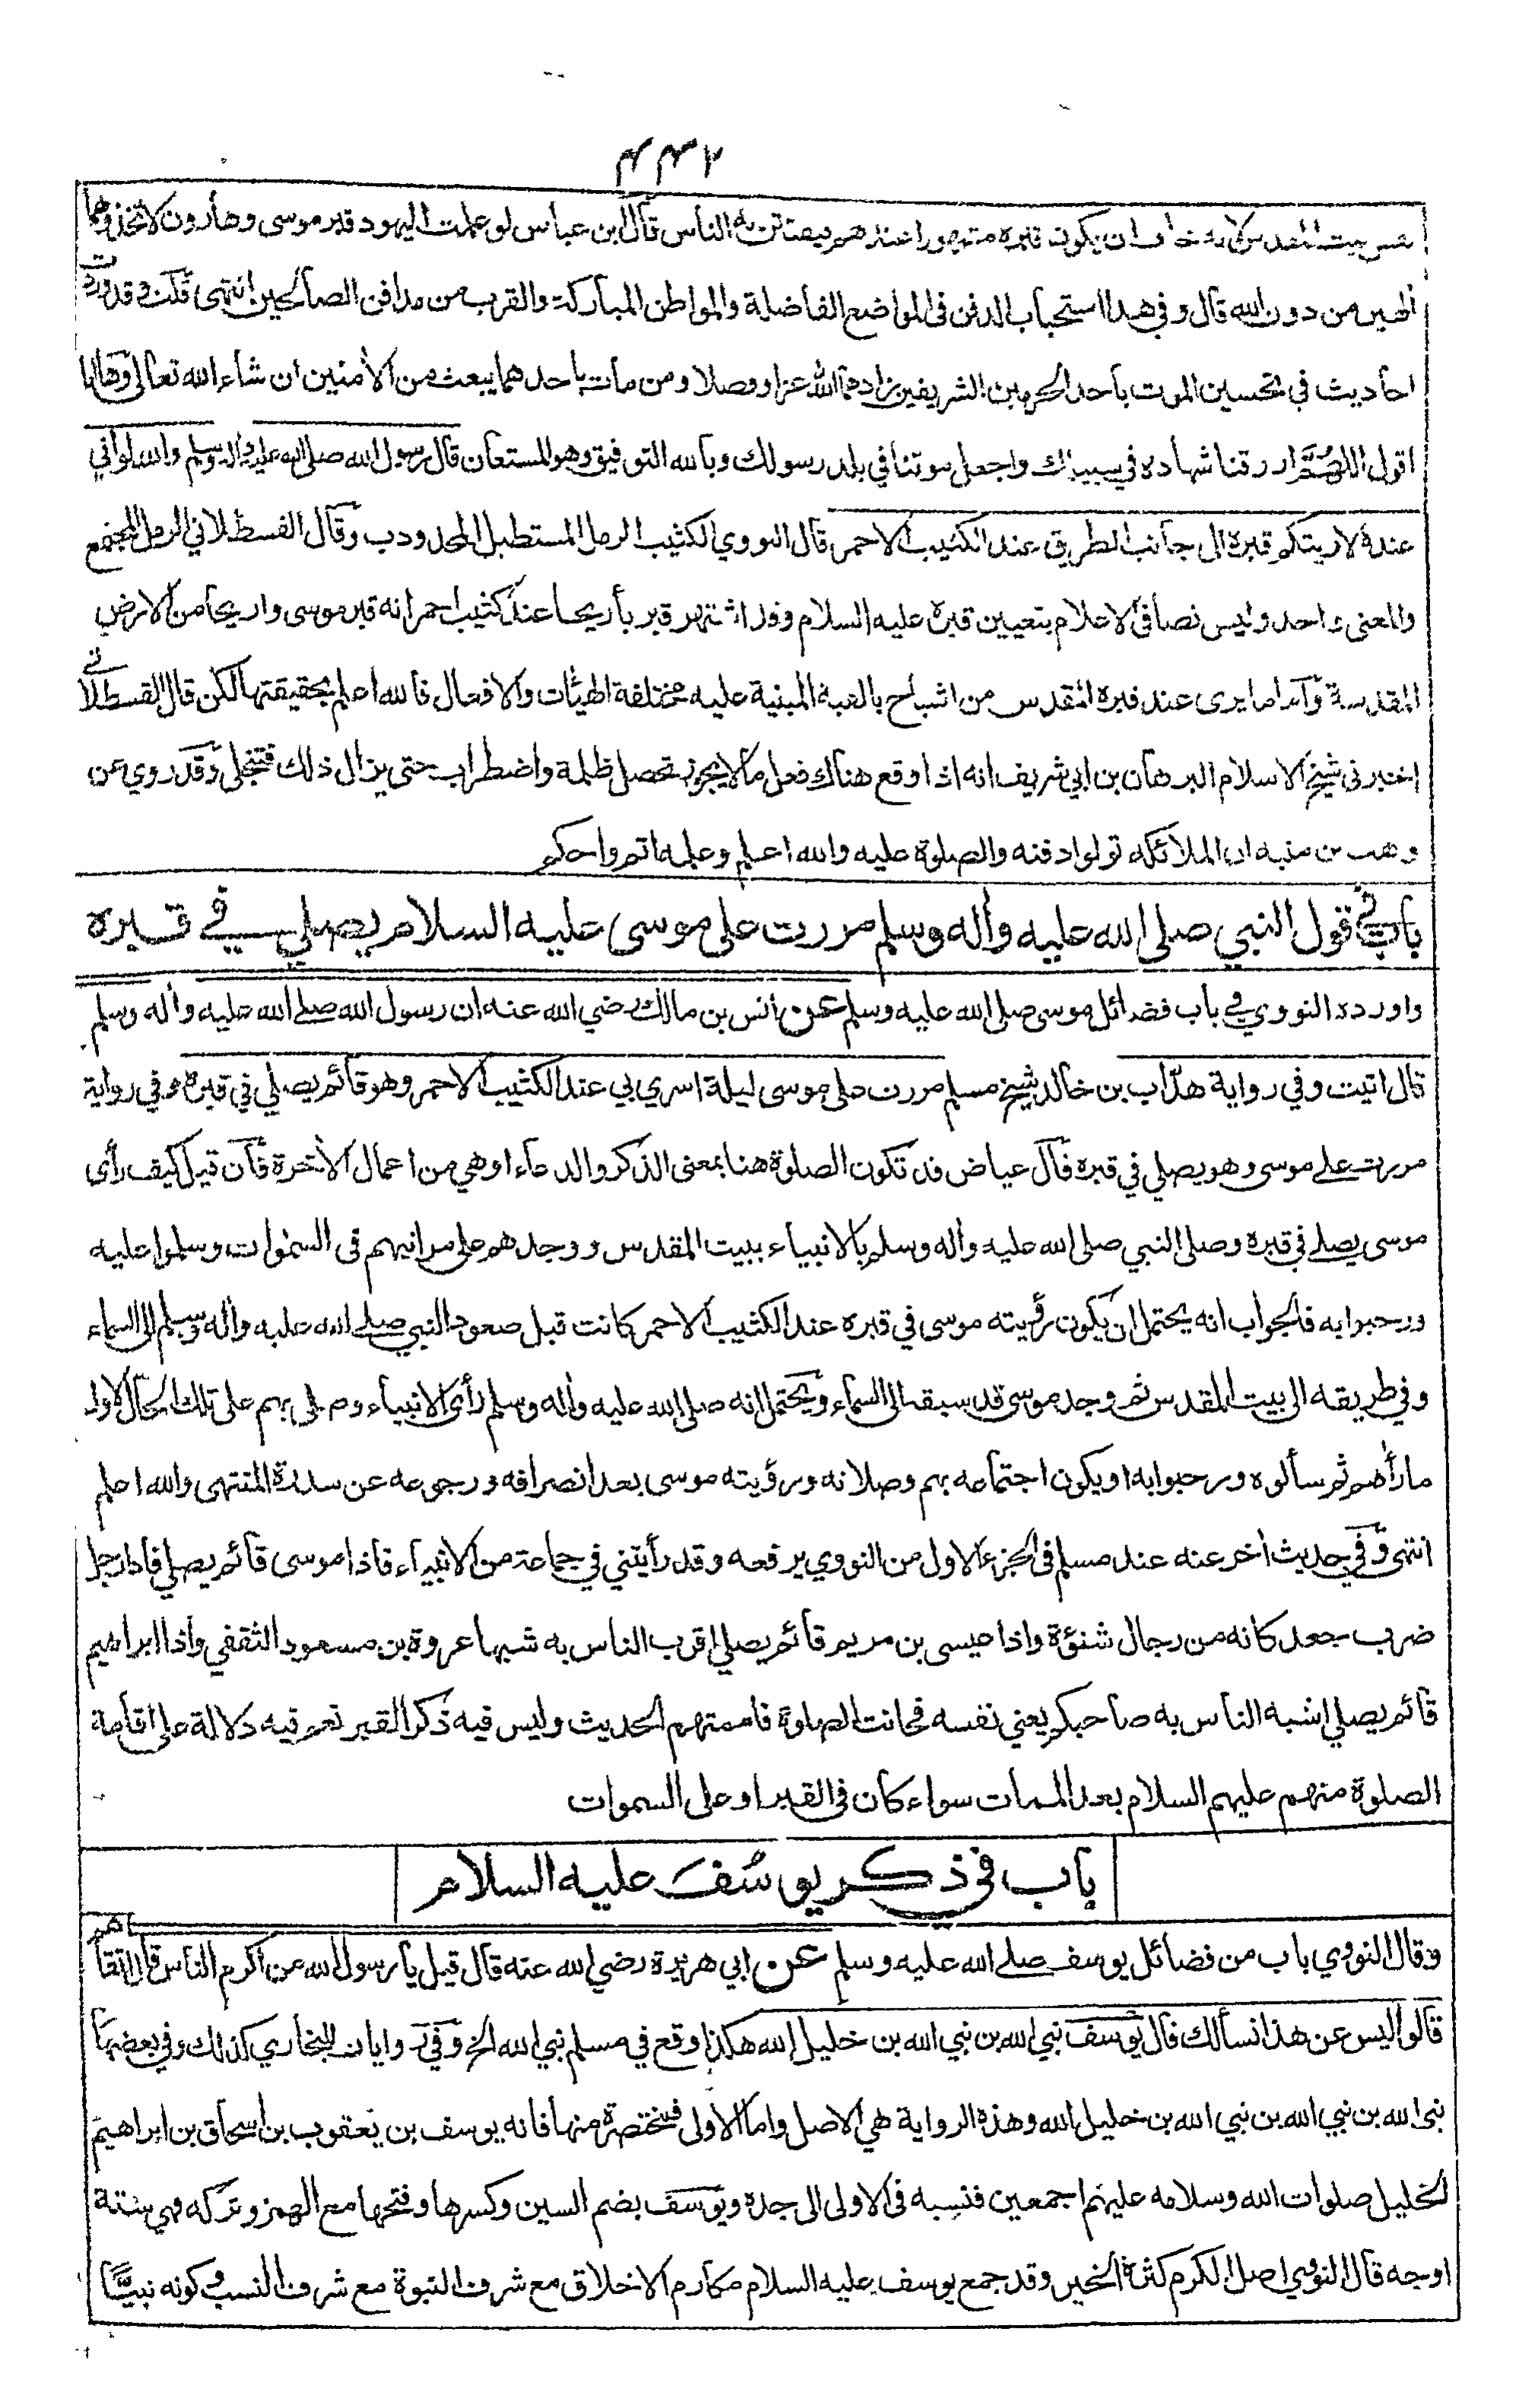 ٤٣٢
نفس بيت المقدس لانه خاف ان يكون قبره مشهورا عندهم فيفتتن به الناس قال ابن عباس لو علمت اليهود قبر موسى وهارون لاتخذوهما
الهين من دون الله قال وفي هذا استحباب الدفن في المواضع الفاضلة والمواطن المباركة والقرب من مدافن الصالحين انتهى قلت وقد وردت
احاديث في تحسين الموت باحد الحرمين الشريفين زادهما الله عزا وفضلا ومن مات باحدهما يبعث من الأمنين ان شاء الله تعالى وها انا
اقول اللهم ارزقنا شهادة في سبيلك واجعل موتنا في بلد رسولك وبالله التوفيق وهو المستعان قال رسول الله صلى الله عليه واله وسلم والله لو اني
عنده لاريتكم قبره الى جانب الطريق عند الكثيب الاحمر قال النووي الكثيب الرمل المستطيل المحدودب وقال القسطلاني الرمل المجتمع
والمعنى واحد وليس نصا في الاعلام بتعيين قبره عليه السلام وقد اشتهر قبر بأريحا عند كثيب احمر انه قبر موسى واريحا من الارض
المقدسة واما ما يرى عند قبره المقدس من اشباح بالقبة المبنية عليه مختلفة الهيئات والافعال فالله اعلم بحقيقتها لكن قال القسطلاني
اخبرني شيخ الاسلام البرهان بن ابي شريف انه اذا وقع هناك فعل ما لا يجوز تحصل ظلمة واضطراب حتى يزال ذلك فتنجلي وقد روي عن
وهب بن منبه ان الملائكة تولوا دفنه والصلوة عليه والله اعلم وعلمه اتم واحكم
باب في قول النبي صلى الله عليه وأله وسلم مررت على موسى عليه السلام يصلي في قبره
واورده النووي في باب فضائل موسى صلى الله عليه وسلم عن انس بن مالك رضي الله عنه ان رسول الله صلى الله عليه وأله وسلم
قال اتيت وفي رواية هدّاب بن خالد شيخ مسلم مررت على موسى ليلة اسري بي عند الكثيب الاحمر وهو قائم يصلي في قبره وفي رواية
مررت على موسى وهو يصلي في قبره قال عياض قد تكون الصلوة هنا بمعنى الذكر والدعاء او هي من اعمال الأخرة فان قيل كيف رأى
موسى يصلي في قبره وصلى النبي صلى الله عليه وأله وسلم بالانبياء ببيت المقدس ووجدهم على مراتبهم في السموات وسلموا عليه
ورحبوا به فالجواب انه يحتمل ان يكون رؤيته موسى في قبره عند الكثيب الاحمر كانت قبل صعود النبي صلى الله عليه وأله وسلم الى السماء
وفي طريقه الى بيت المقدس ثم وجد موسى قد سبقه الى السماء ويحتمل انه صلى الله عليه وأله وسلم رأى الانبياء وصلى بهم على تلك الحال لاول
ما رأهم ثم سألوه ورحبوا به او يكون اجتماعه بهم وصلاته ورؤيته موسى بعد انصرافه ورجوعه عن سدرة المنتهى والله اعلم
انتهى وفي حديث اخر عنه عند مسلم في الجزء الاول من النووي يرفعه وقد رأيتني في جماعة من الانبياء فاذا موسى قائم يصلي فاذا رجل
ضرب جعد كانه من رجال شنؤة واذا عيسى بن مريم قائم يصلي اقرب الناس به شبها عروة بن مسعود الثقفي واذا ابراهيم
قائم يصلي اشبه الناس به صاحبكم يعني نفسه فحانت الصلوة فاممتهم الحديث وليس فيه ذكر القبر نعم فيه دلالة على اقامة
الصلوة منهم عليهم السلام بعد الممات سواء كان في القبر او على السموات
باب في ذكر يوسُف عليه السلام
وقال النووي باب من فضائل يوسف صلى الله عليه وسلم عن ابي هريرة رضي الله عنه قال قيل يا رسول الله من اكرم الناس قال اتقاهم
قالوا ليس عن هذا نسألك قال يوسف نبي الله بن نبي الله بن خليل الله هكذا وقع في مسلم نبي الله الخ وفي روايات للبخاري كذلك وفي بعضها
نبي الله بن نبي الله بن نبي الله بن خليل الله وهذه الرواية هي الاصل واما الاولى فمختصرة منها فانه يوسف بن يعقوب بن اسحاق بن ابراهيم
الخليل صلوات الله وسلامه عليهم اجمعين فنسبه في الاولى الى جده ويوسف بضم السين وكسرها وفتحها مع الهمز وتركه فهي ستة
اوجه قال النووي اصل الكرم كثرة الخير وقد جمع يوسف عليه السلام مكارم الاخلاق مع شرف النبوة مع شرف النسب وكونه نبيًّا